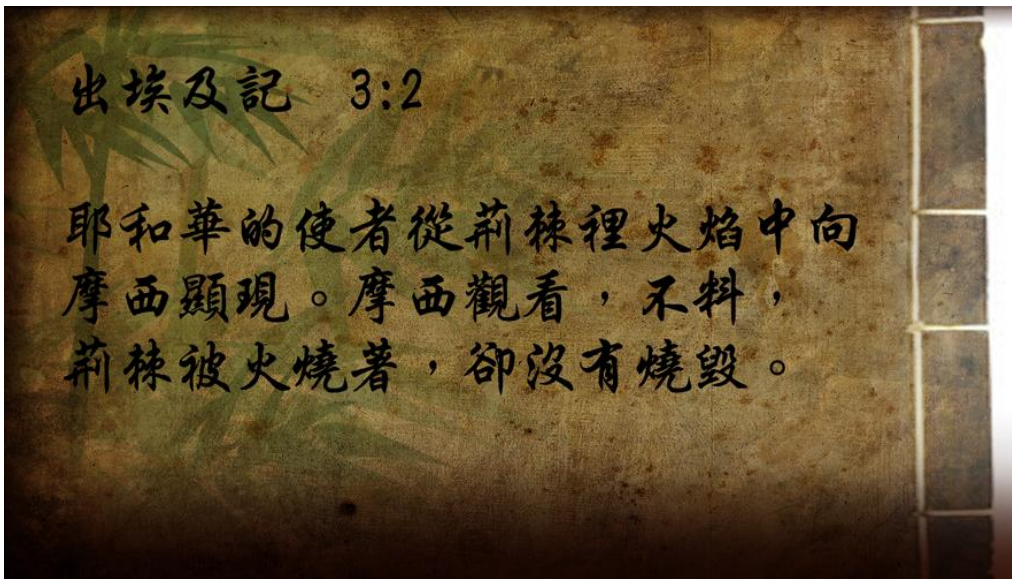 出埃及記 3:2
耶和華的使者從荊棘裡火焰中向
摩西顯現。摩西觀看，不料，
荊棘被火燒著，卻沒有燒毀。